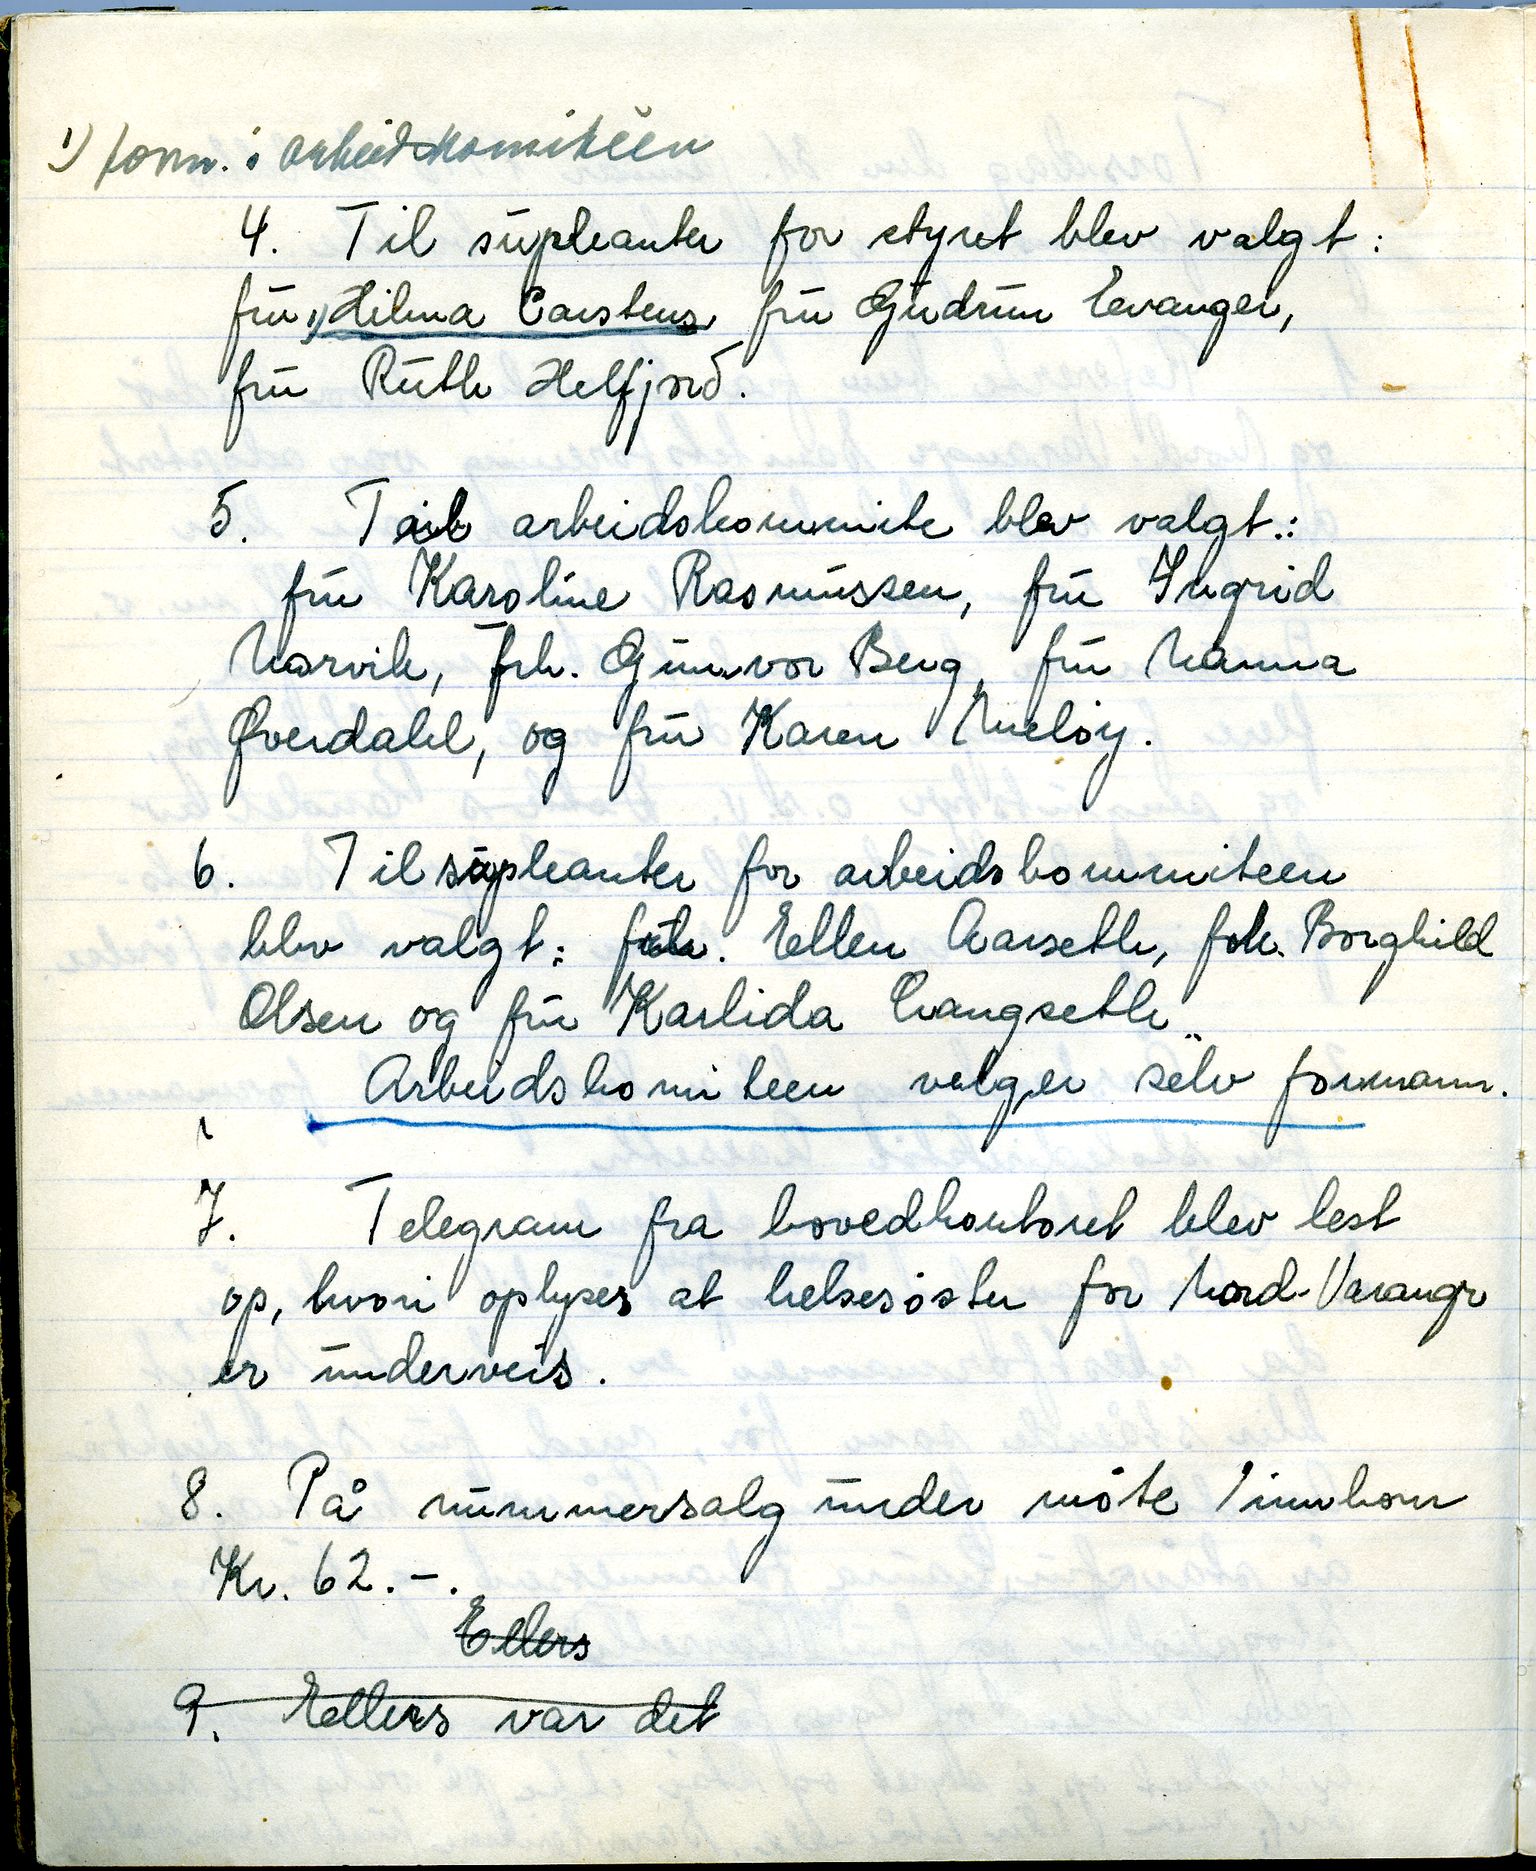 1) form. i arbeidskomitéen
4. Til supleanter for styret blev valgt:
fru 1) Hilma Carstens, fru Gudrun Evanger,
fru Ruth Helfjord.
5. Til arbeidskommite blev valgt:
fru Karoline Rasmussen, fru Ingrid
Narvik, frk. Gunvor Berg, fru Nanna
Øverdahl, og fru Karen Meløy.
6. Til supleanter for arbeidskommiteen
blev valgt: frk. Ellen Aarseth, frk. Borghild
Olsen og fru Karlida Evangseth.
Arbeidskomiteen velger selv formann.
7. Telegram fra hovedkontoret blev lest
op, hvori oplyses at helsesøster for Nord-Varangr
er underveis.
8. På nummersalg under møte innkom
Kr. 62.-.
Ellers
9. Ellers var det